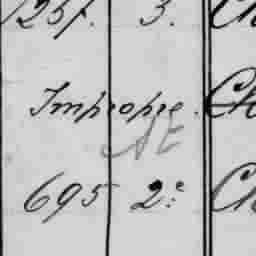 1257. 3. Ch
Impropre. Ch
AE
695 2e: Ch